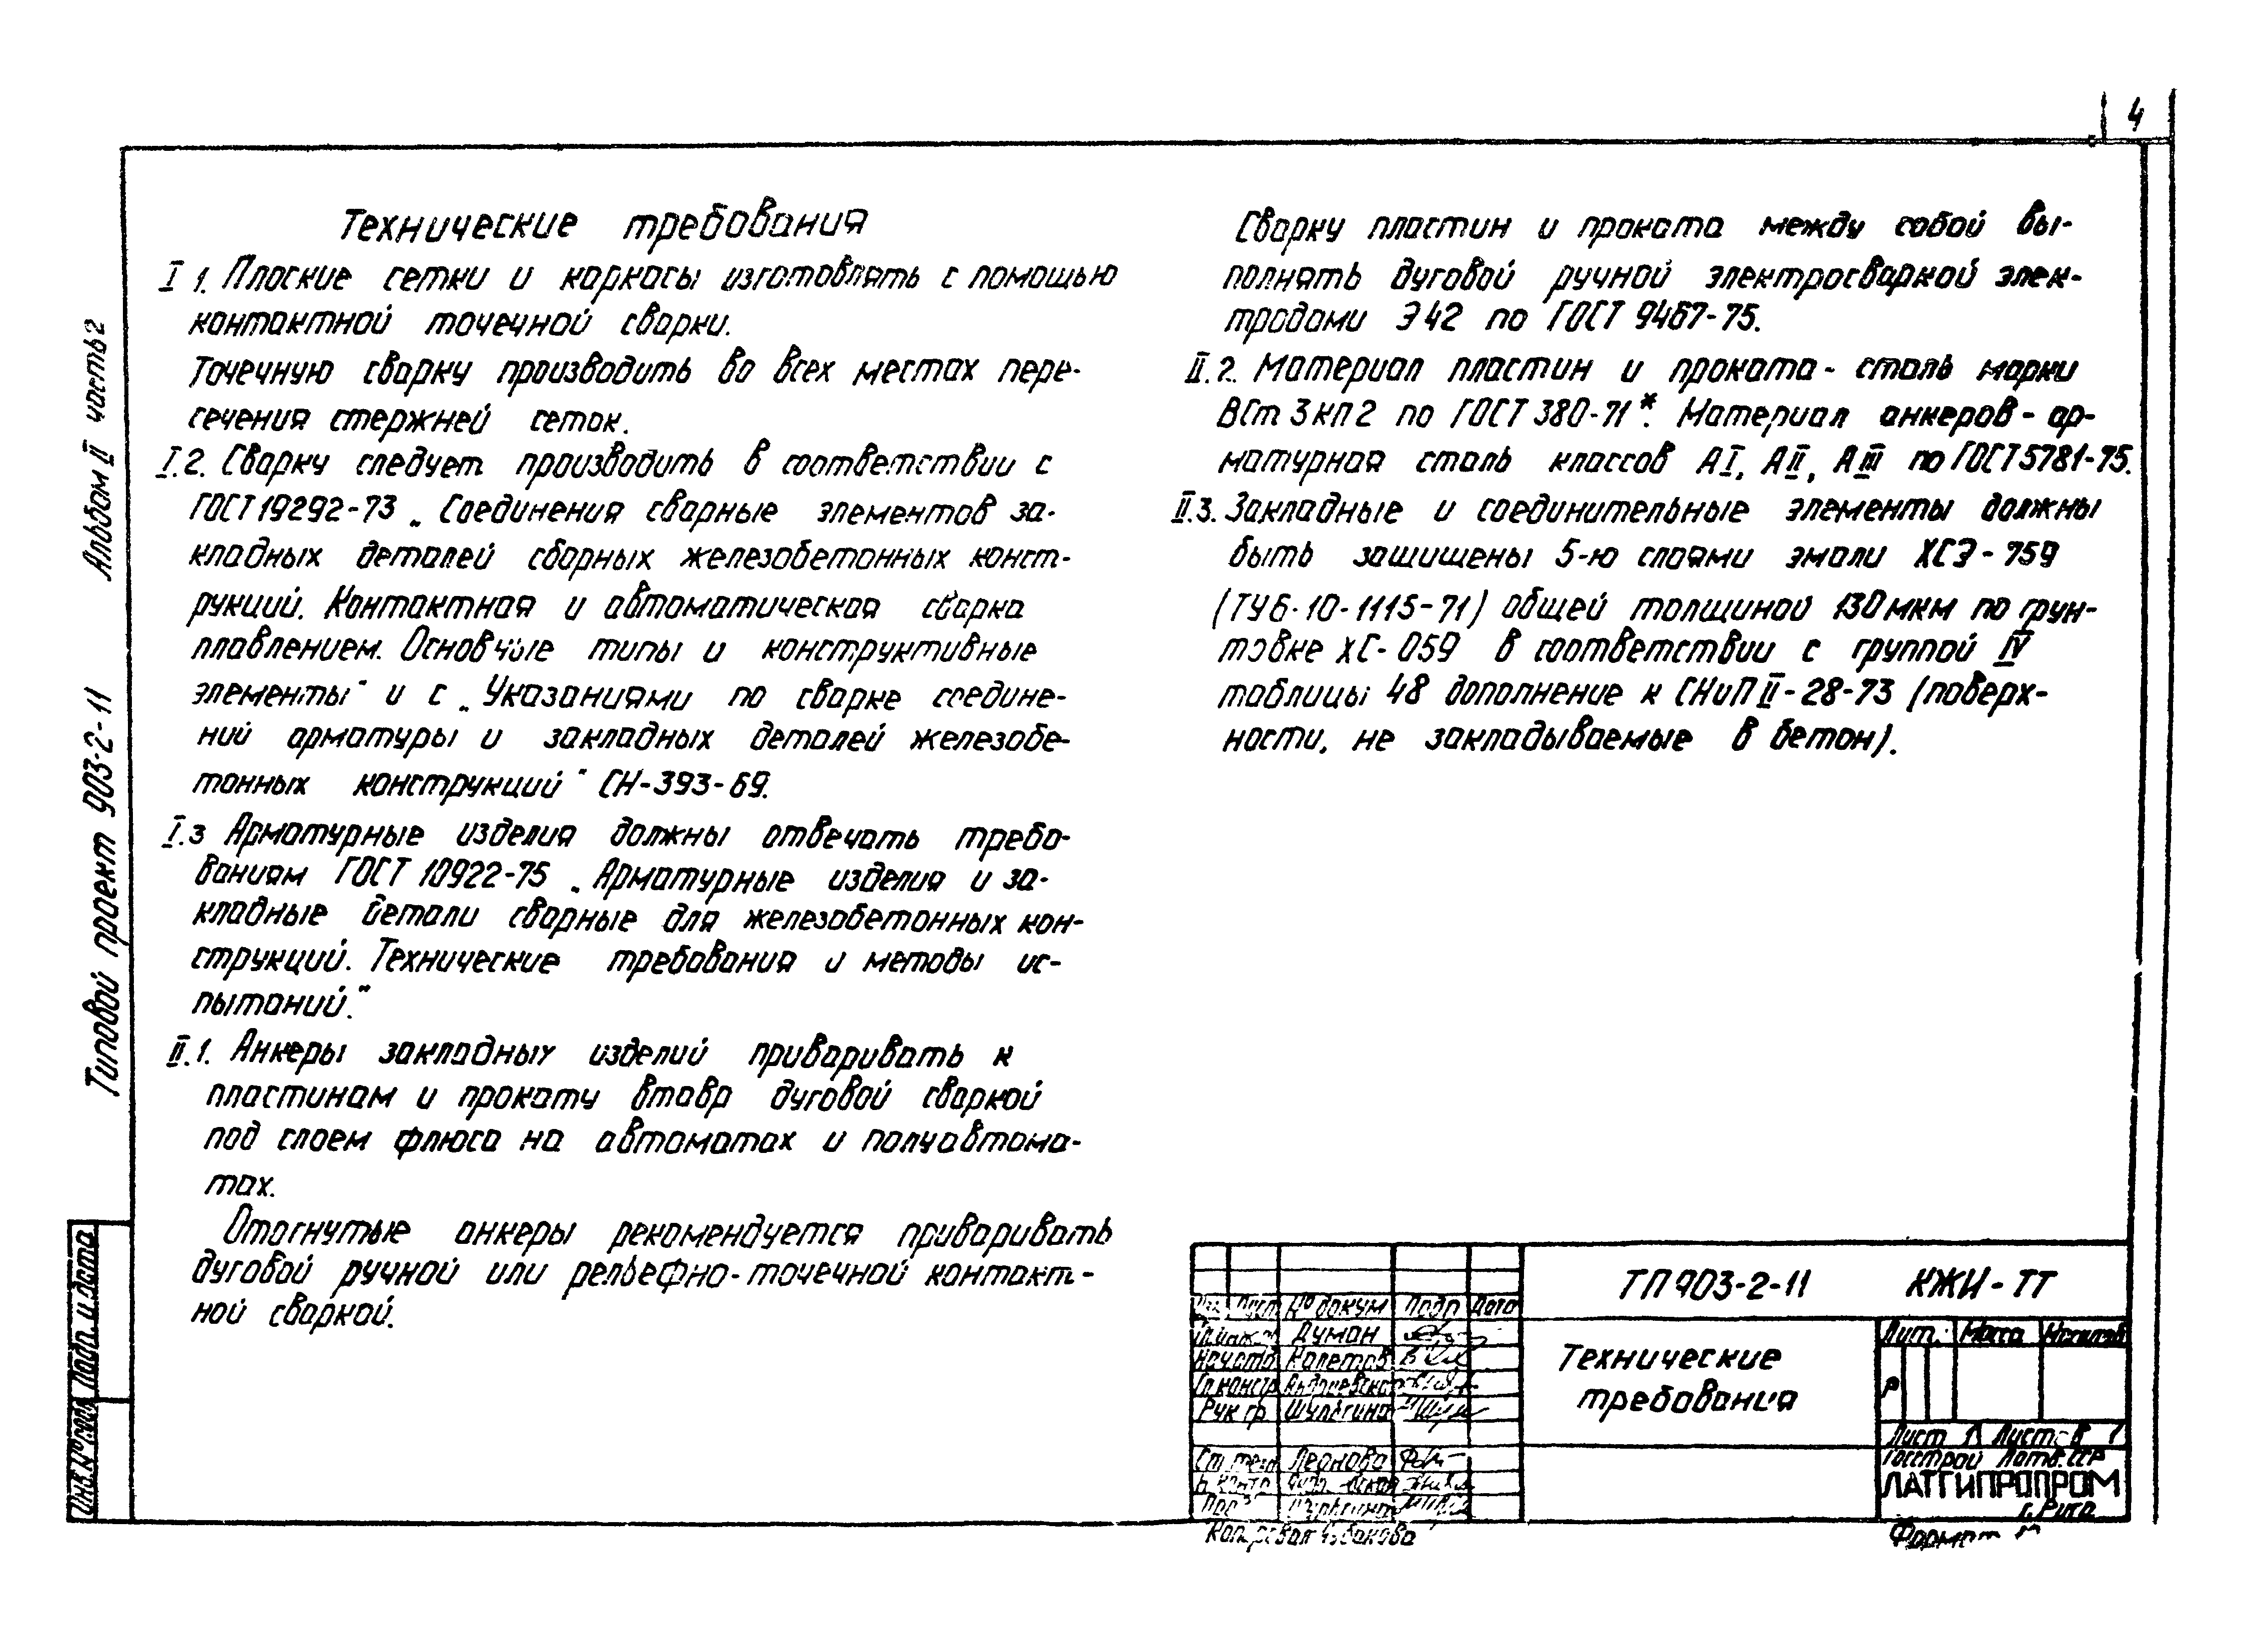 4
Технические требования
I 1. Плоские сетки и каркасы изготовлять с помощью
контактной точечной сварки.
Точечную сварку производить во всех местах пере-
сечения стержней сеток.
I.2. Сварку следует производить в соответствии с
ГОСТ 19292-73 „Соединения сварные элементов за-
кладных деталей сборных железобетонных конст-
рукций. Контактная и автоматическая сварка
плавлением. Основные типы и конструктивные
элементы" и с „Указаниями по сварке соедине-
ний арматуры и закладных деталей железобе-
тонных конструкций" СН-393-69.
I.3 Арматурные изделия должны отвечать требо-
ваниям ГОСТ 10922-75 „Арматурные изделия и за-
кладные детали сварные для железобетонных кон-
струкций. Технические требования и методы ис-
пытаний."
II.1. Анкеры закладных изделий приваривать к
пластинам и прокату втавр дуговой сваркой
под слоем флюса на автоматах и полуавтома-
тах.
Отогнутые анкеры рекомендуется приваривать
дуговой ручной или рельефно-точечной контакт-
ной сваркой.
Сварку пластин и проката между собой вы-
полнять дуговой ручной электросваркой элек-
тродами Э42 по ГОСТ 9467-75.
II.2. Материал пластин и проката - сталь марки
ВСт 3 кп 2 по ГОСТ 380-71*. Материал анкеров - ар-
матурная сталь классов АI, АII, АIII по ГОСТ 5781-75.
II.3. Закладные и соединительные элементы должны
быть защищены 5-ю слоями эмали ХСЭ-759
(ТУ6-10-1115-71) общей толщиной 130 мкм по грун-
товке ХС-059 в соответствии с группой IV
таблицы 48 дополнение к СНиП II-28-73 (поверх-
ности, не закладываемые в бетон).
Типовой проект 903-2-11 Альбом II часть 2
Подп. и дата
Инв. № подл.
ТП 903-2-11 КЖИ-ТТ
Лист № докум Подп Дата
Думан
Нач отд Калетов
Гл констр
Рук гр Шульгина
Леонова
Технические
требования
Лит. Масса Масштаб
Р
Лист 1 Листов 1
Госстрой Латв.ССР
ЛАТГИПРОПРОМ
г. Рига
Копировал
Формат